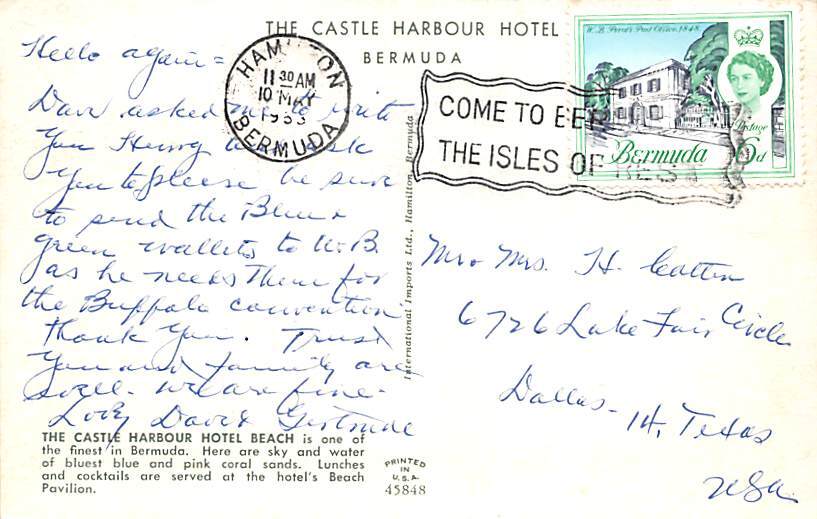 THE CASTLE HARBOUR HOTEL
BERMUDA
Hello again =
Dave asked me to write
you Henry to ask
you to please be sure
to send the Blue &
green wallets to W.B.
as he needs them for
the Buffalo convention
thank you. Trust
you and family are
well. we are fine.
Love David Gertrude
THE CASTLE HARBOUR HOTEL BEACH is one of
the finest in Bermuda. Here are sky and water
of bluest blue and pink coral sands. Lunches
and cocktails are served at the hotel's Beach
Pavilion.
International Imports Ltd., Hamilton, Bermuda
PRINTED
IN
U.S.A.
45848
HAMILTON
11 30 AM
10 MAY
BERMUDA
COME TO
THE ISLES OF REST
W. B. Perot's Post Office, 1848
Postage
Bermuda 6d
Mr & Mrs. H.
6726 Lake Fair Circle
Dallas - 14, Texas
USA